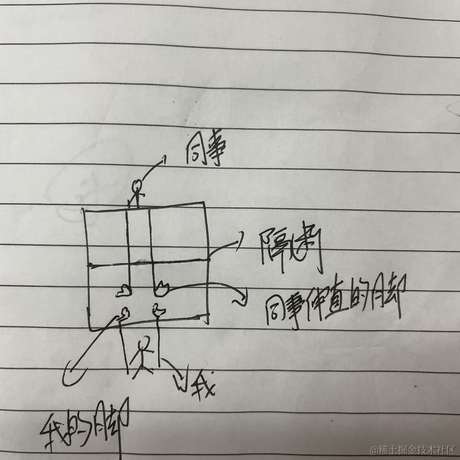 同事
隔断
同事伸直的脚
我
我的脚
@稀土掘金技术社区